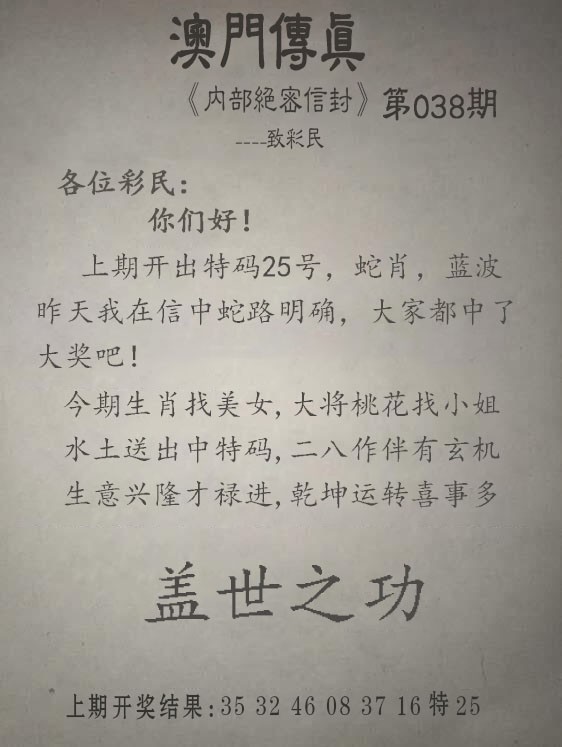 澳門傳眞
《内部絕密信封》第038期
----致彩民
各位彩民：
你们好！
上期开出特码25号，蛇肖，蓝波
昨天我在信中蛇路明确，大家都中了
大奖吧！
今期生肖找美女,大将桃花找小姐
水土送出中特码,二八作伴有玄机
生意兴隆才禄进,乾坤运转喜事多
盖世之功
上期开奖结果:35 32 46 08 37 16 特 25